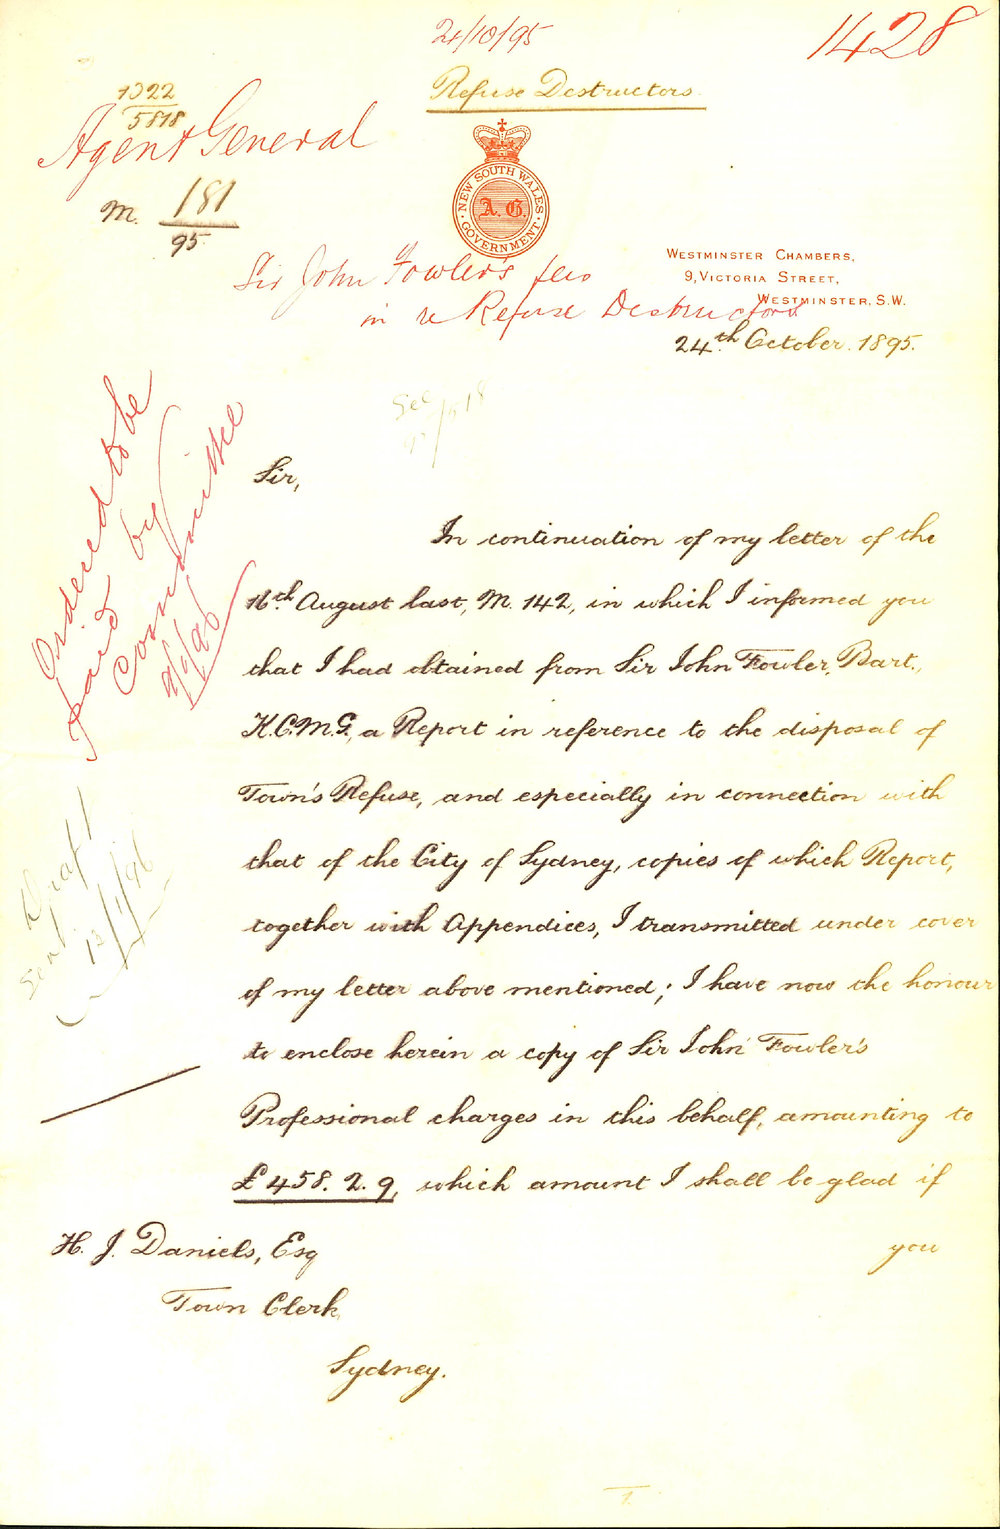 24/10/95
1428
Refuse Destructors
1322
5818
Agent General
M. 181
95
NEW SOUTH WALES
A.G.
GOVERNMENT
WESTMINSTER CHAMBERS,
9, VICTORIA STREET,
WESTMINSTER, S.W.
Sir John Fowler's fees
in re Refuse Destructors
24th October. 1895.
See
Ordered to be
paid by
Committee
9/1/96
Sir,
In continuation of my letter of the
16th August last, M. 142, in which I informed you
that I had obtained from Sir John Fowler, Bart.,
K.C.M.G., a Report in reference to the disposal of
Town's Refuse, and especially in connection with
that of the City of Sydney, copies of which Report,
together with Appendices, I transmitted under cover
of my letter above mentioned; I have now the honour
to enclose herein a copy of Sir John Fowler's
Professional charges in this behalf, amounting to
£458. 2. 9, which amount I shall be glad if
you
Draft
Sent
13/1/96
H. J. Daniels, Esq
Town Clerk,
Sydney.
1.